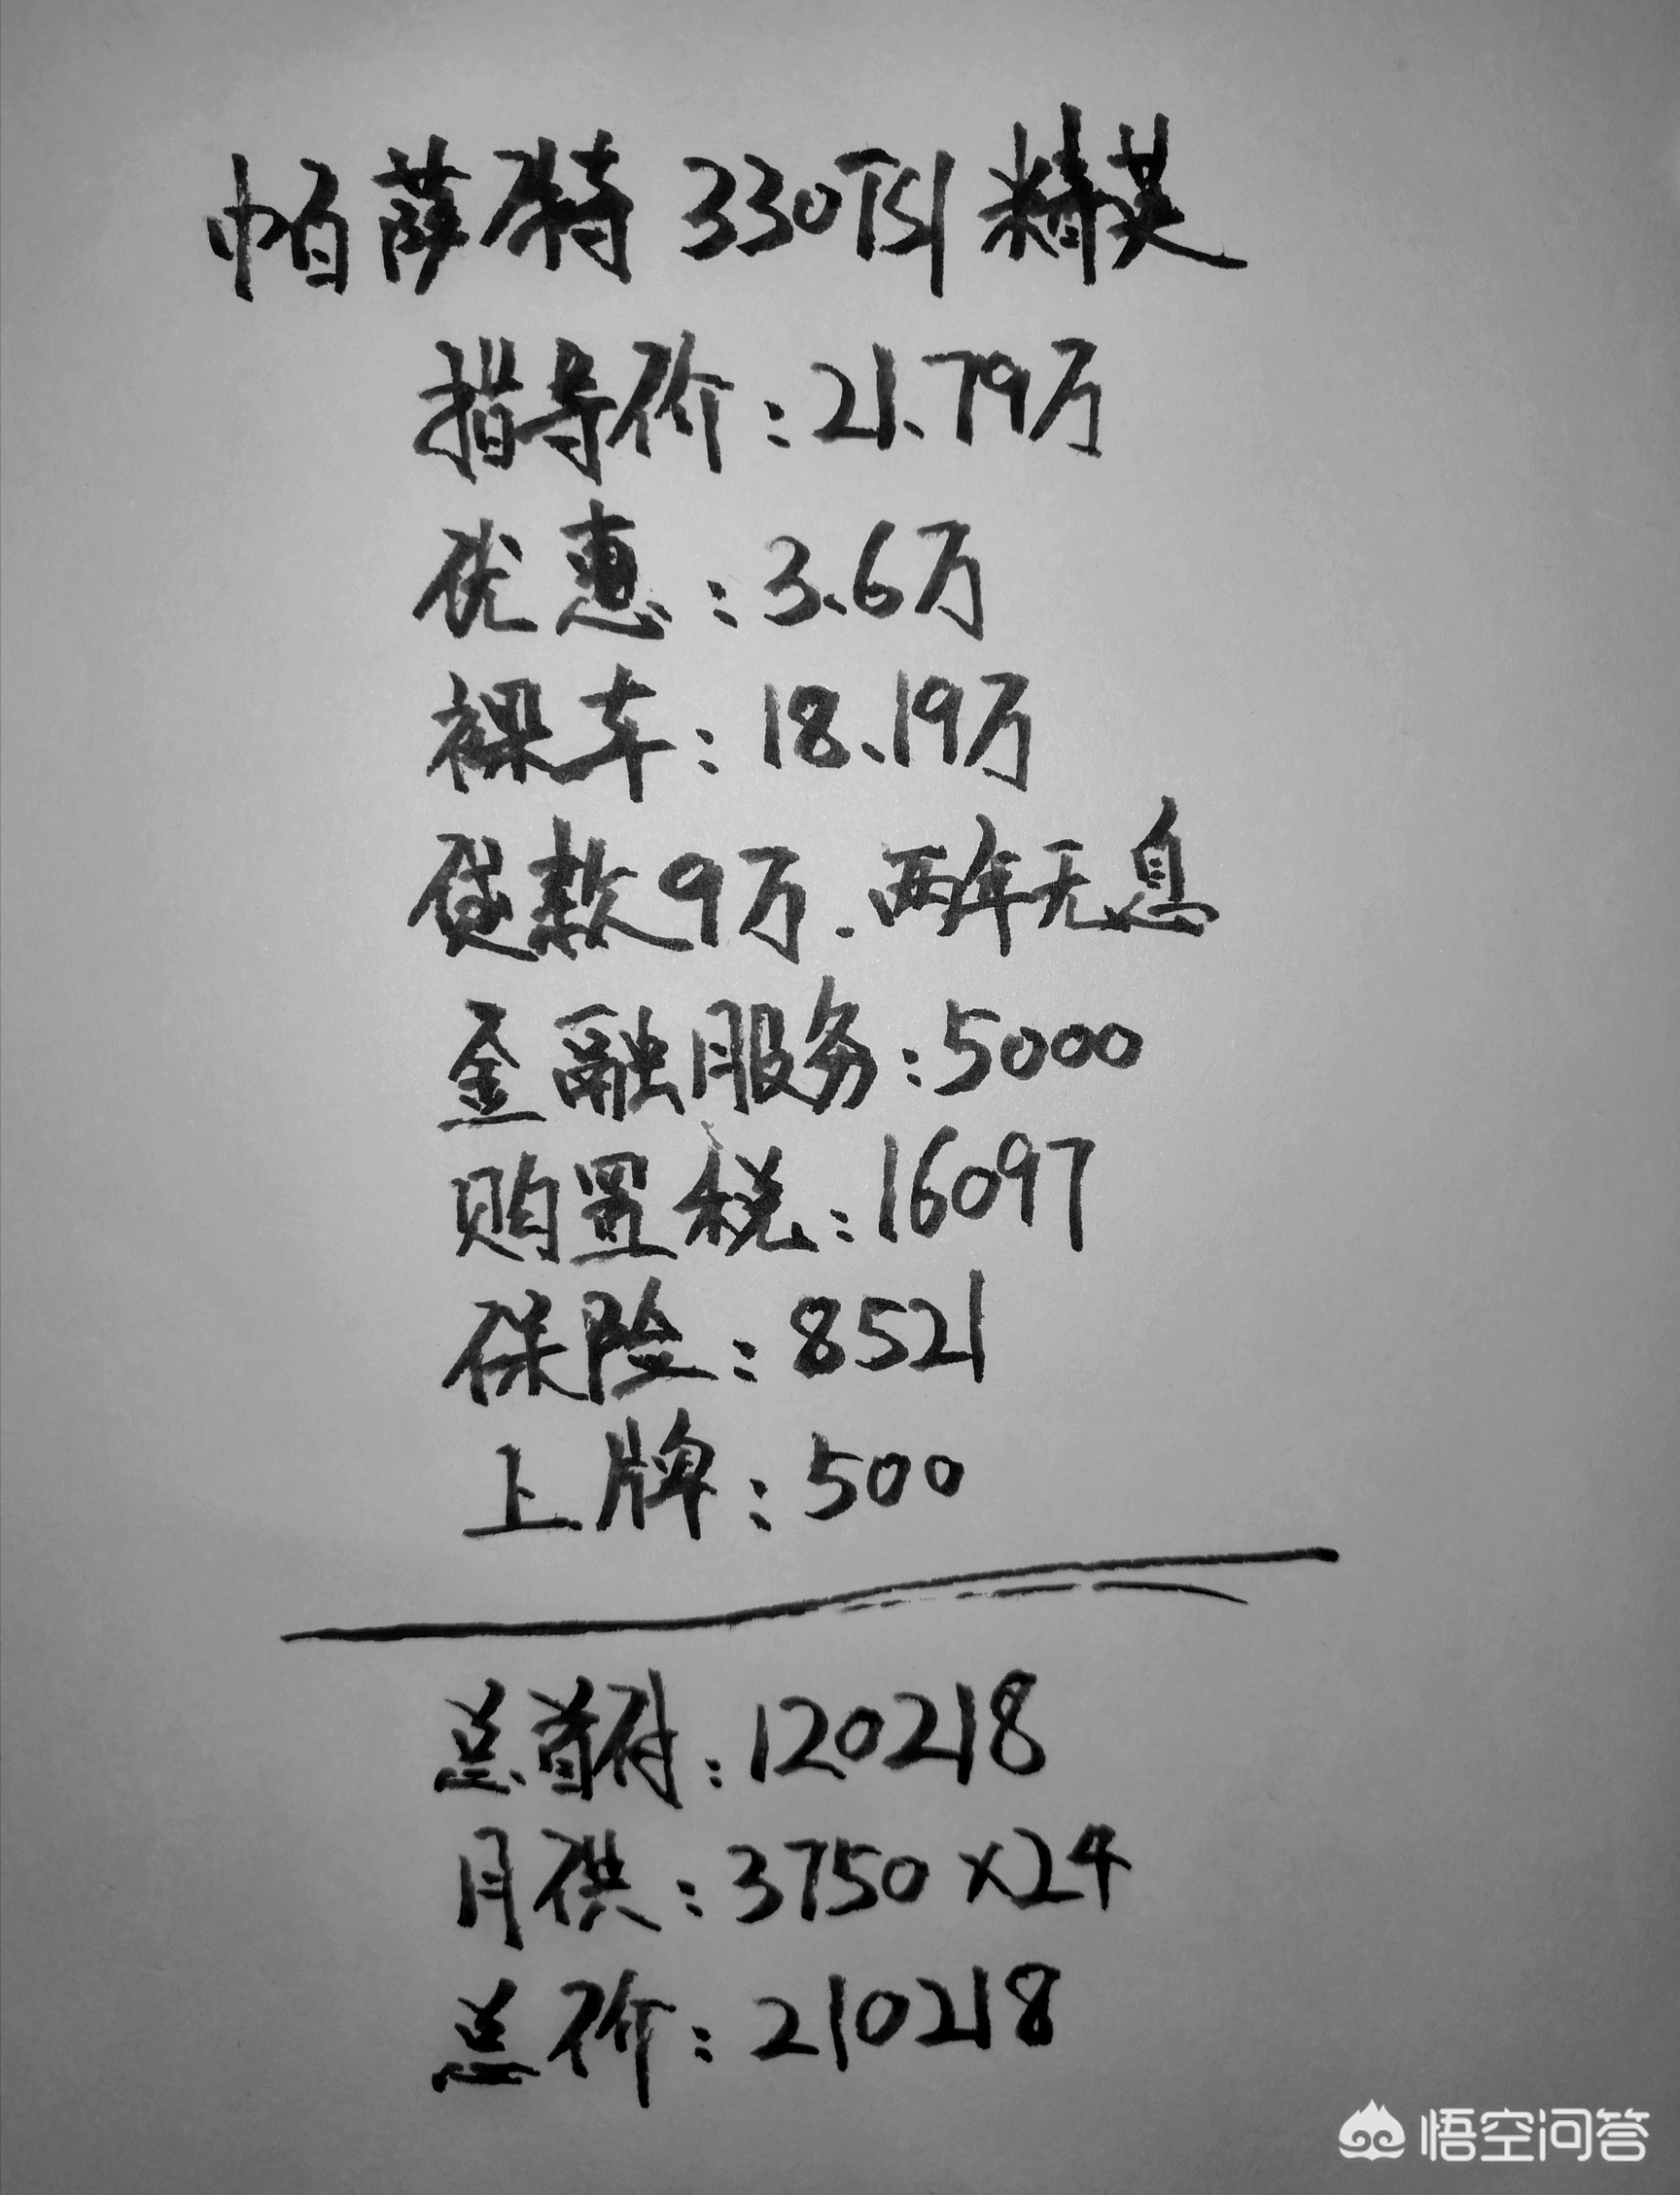 帕萨特 330TSI 精英
指导价：21.79万
优惠：3.6万
裸车：18.19万
贷款9万.两年无息
金融服务：5000
购置税：16097
保险：8521
上牌：500
总首付：120218
月供：3750×24
总价：210218
悟空问答